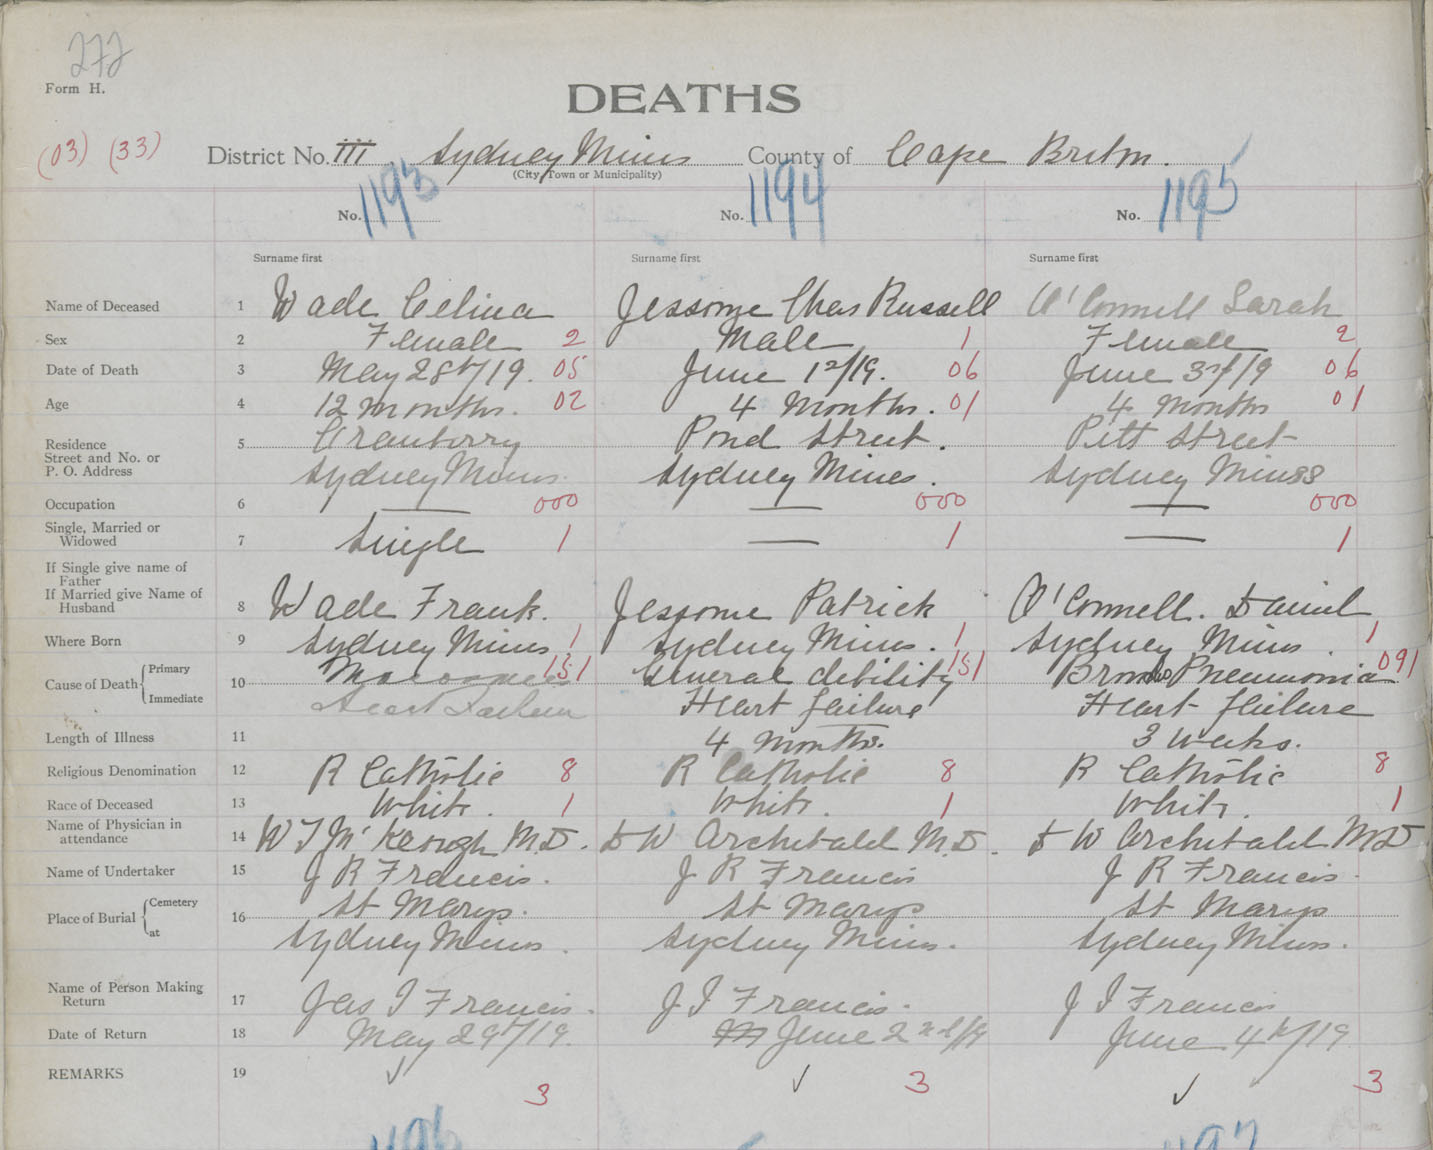 272
Form H.
DEATHS
(03) (33)
District No. III Sydney Mines County of Cape Breton.
(City, Town or Municipality)
No. 1193 No. 1194 No. 1195
Surname first Surname first Surname first
Name of Deceased 1 Wade Celina Jessome Chas Russell O'Connell Sarah
Sex 2 Female 2 Male 1 Female 2
Date of Death 3 May 28th/19. 05 June 1st/19. 06 June 3rd/19 06
Age 4 12 months. 02 4 Months. 01 4 months 01
Residence
Street and No. or
P. O. Address
5 Cranberry Pond Street. Pitt Street
Sydney Mines. Sydney Mines. Sydney Mines
Occupation 6 — 000 — 000 — 000
Single, Married or
Widowed
7 Single 1 — 1 — 1
If Single give name of
Father
If Married give Name of
Husband
8 Wade Frank. Jessome Patrick O'Connell. Daniel
Where Born 9 Sydney Mines 1 Sydney Mines. 1 Sydney Mines. 1
Cause of Death Primary
Immediate
10 151 General debility 151 Broncho Pneumonia 091
Heart Failure Heart failure Heart failure
Length of Illness 11 4 months. 3 weeks.
Religious Denomination 12 R Catholic 8 R Catholic 8 R Catholic 8
Race of Deceased 13 White. 1 White. 1 White. 1
Name of Physician in
attendance
14 W J Mc Keough M.D. D W Archibald M.D. D W Archibald MD
Name of Undertaker 15 J R Francis. J R Francis J R Francis.
Place of Burial Cemetery
at
16 St Marys. St Marys St Marys
Sydney Mines. Sydney Mines. Sydney Mines.
Name of Person Making
Return
17 Jas J Francis. J J Francis. J J Francis
Date of Return 18 May 29th/19. June 2nd/19 June 4th/19
REMARKS 19 ✓ 3 ✓ 3 ✓ 3
1196 1197